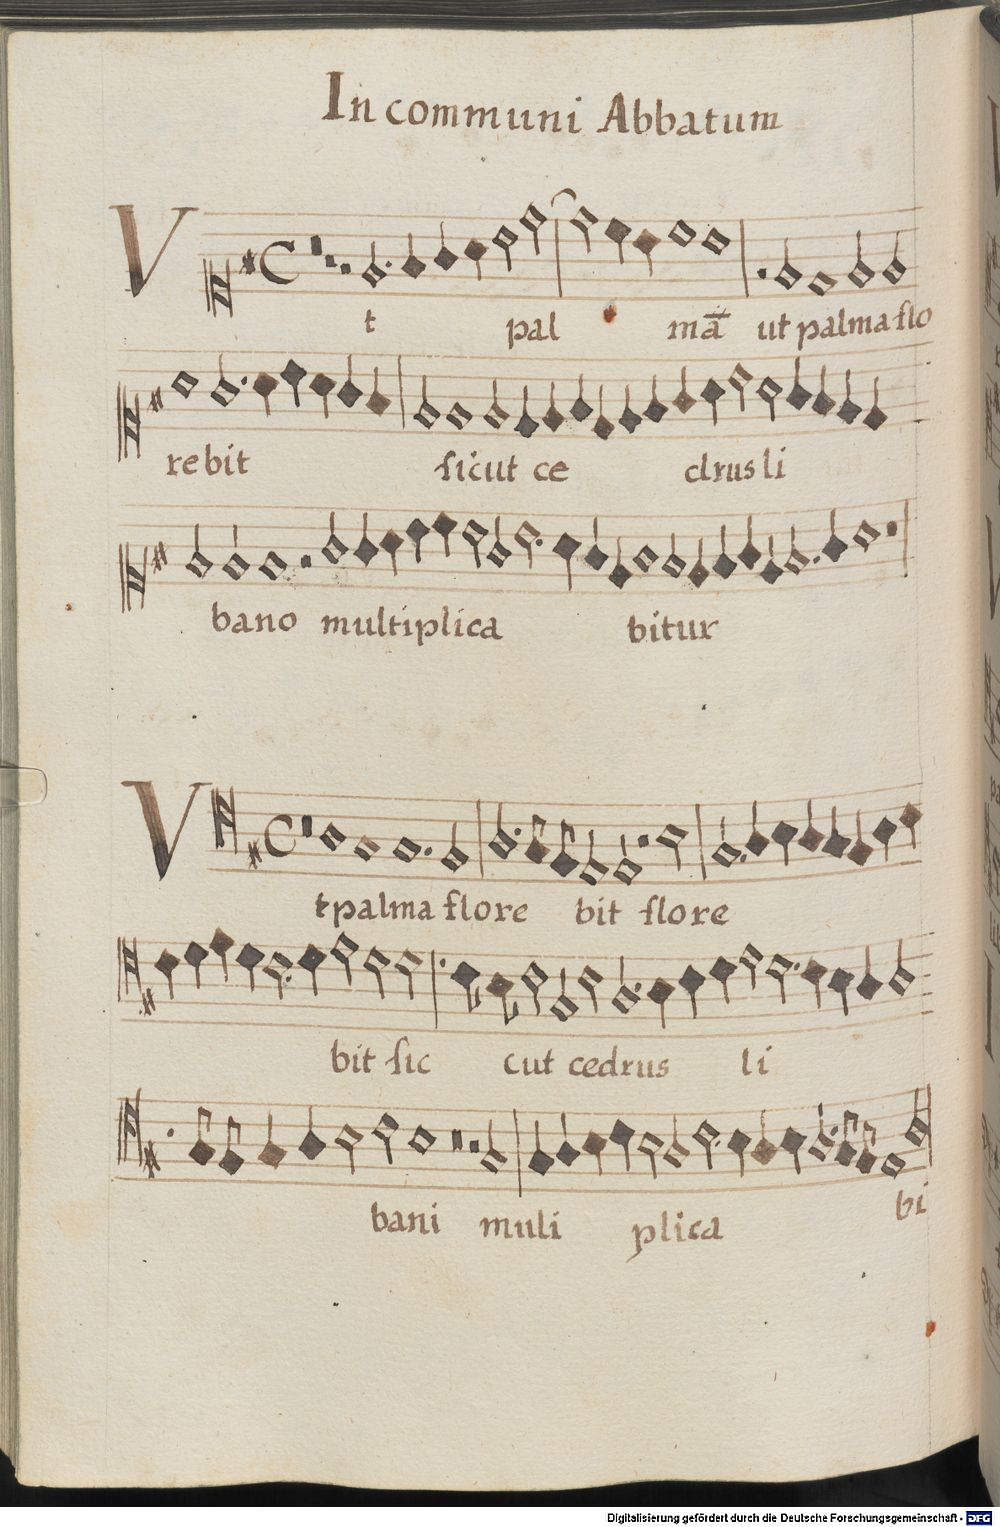 In communi Abbatum
V
t pal mā ut palma flo
rebit sicut ce drus li
bano multiplica bitur
V
t palma flore bit flore
bit sic cut cedrus li
bani muli plica bi
Digitalisierung gefördert durch die Deutsche Forschungsgemeinschaft - DFG